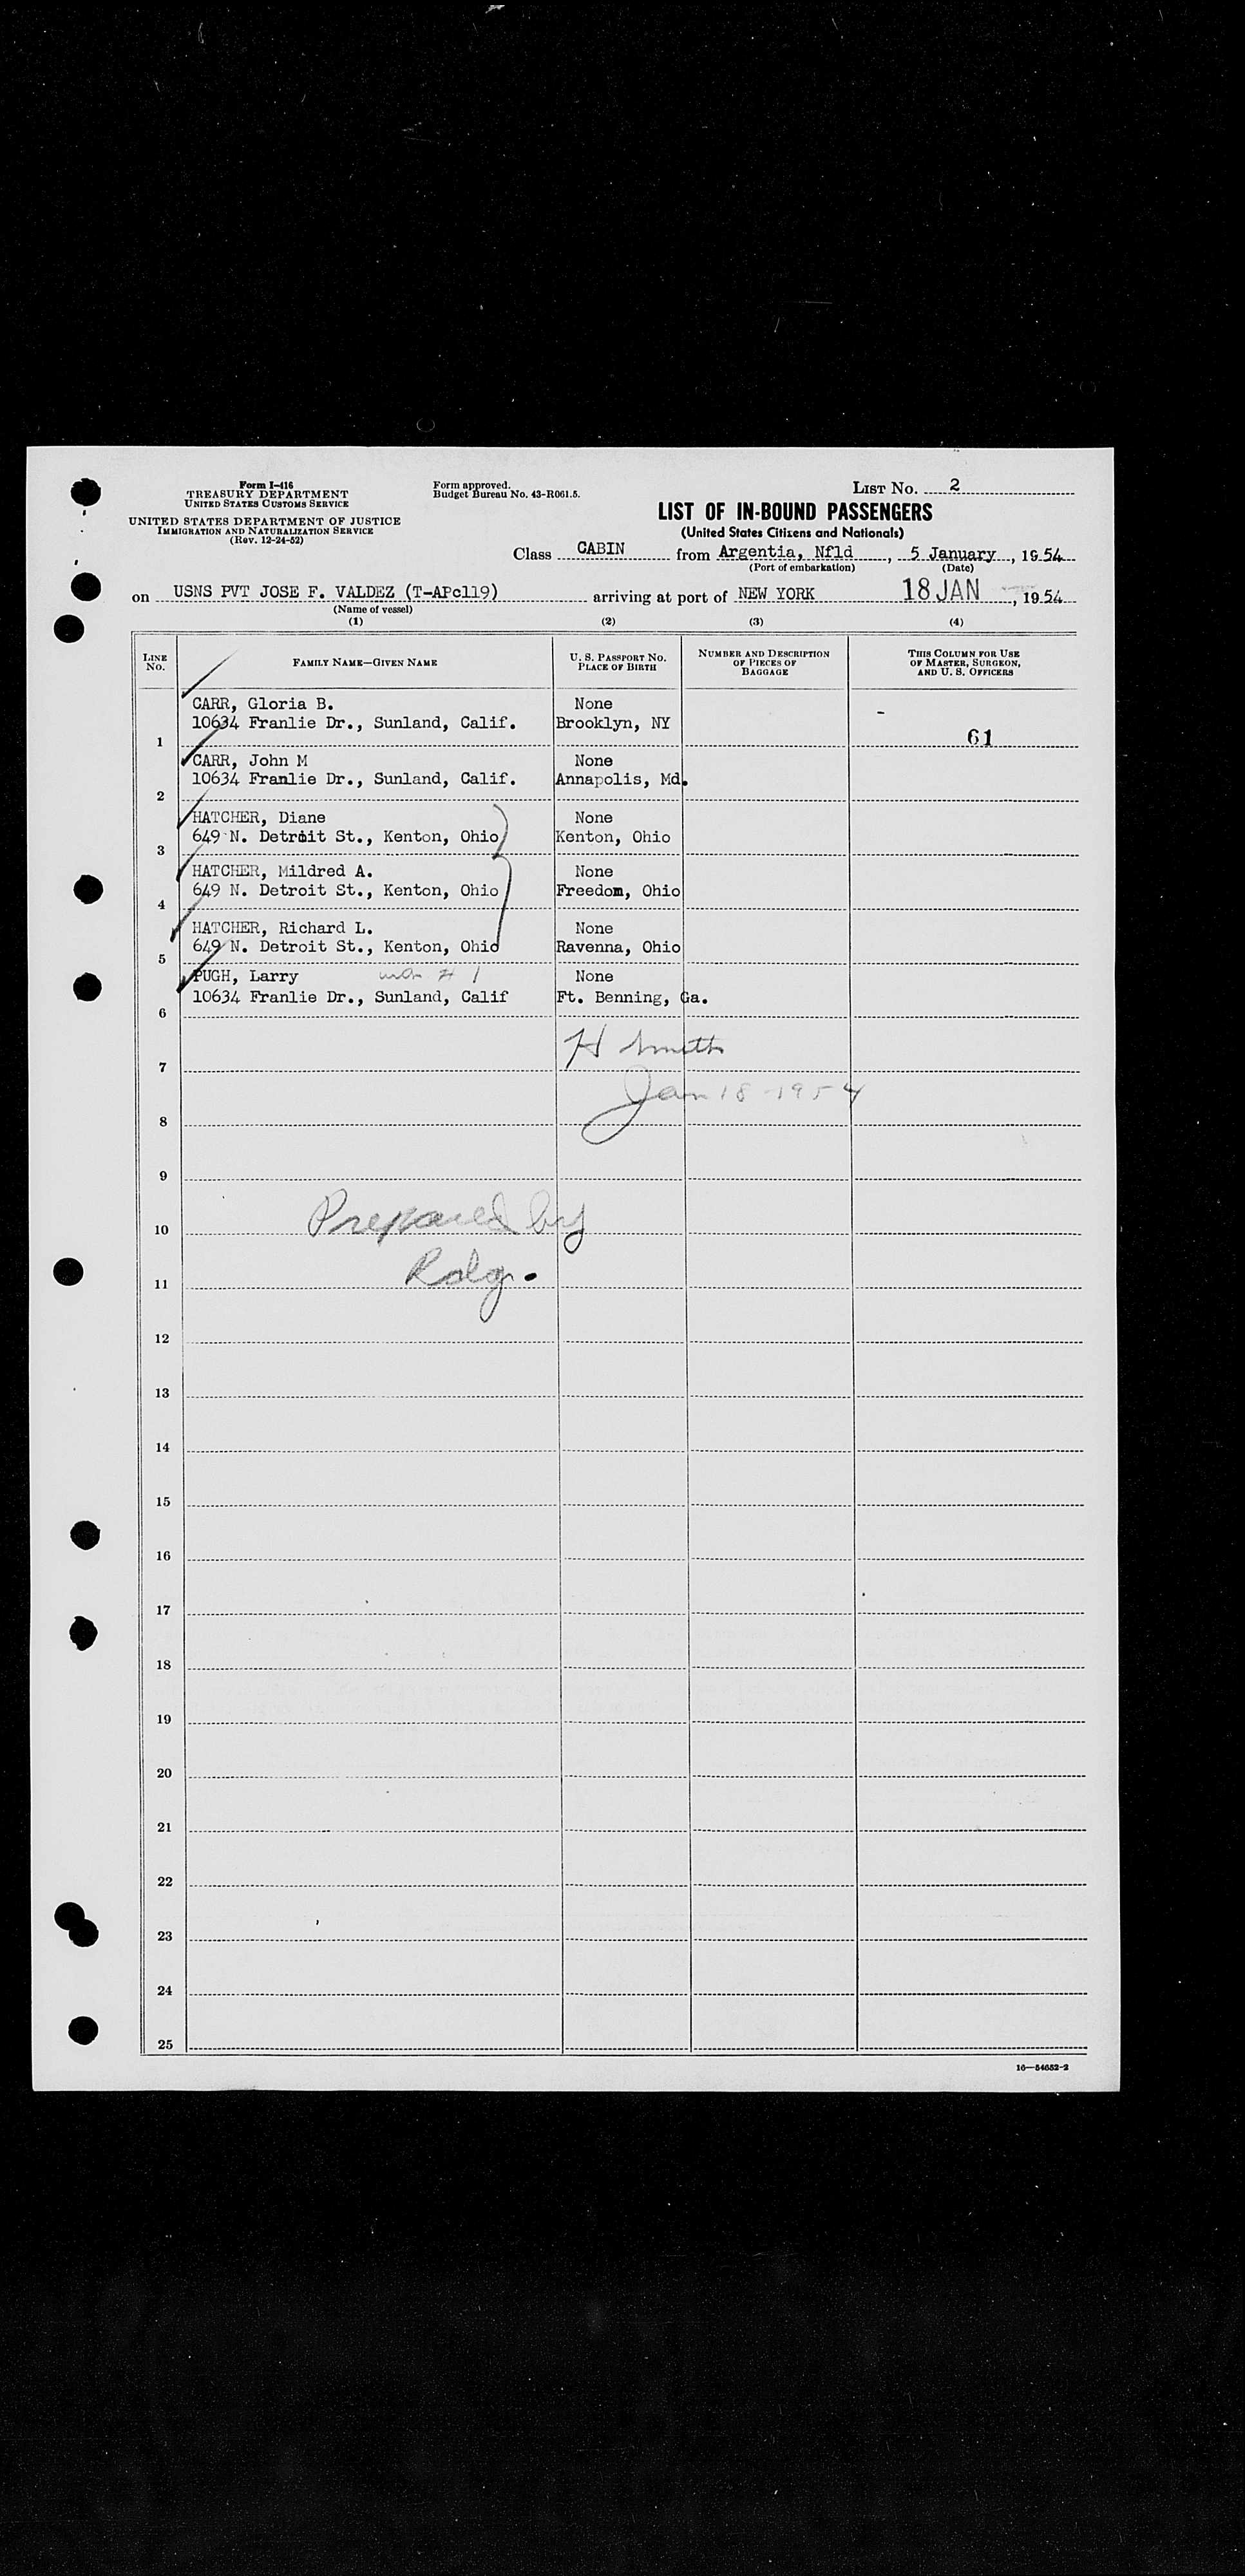 Form I-416
TREASURY DEPARTMENT
UNITED STATES CUSTOMS SERVICE
UNITED STATES DEPARTMENT OF JUSTICE
IMMIGRATION AND NATURALIZATION SERVICE
(Rev. 12-24-52)
Form approved.
Budget Bureau No. 43-R061.5.
LIST NO. 2
LIST OF IN-BOUND PASSENGERS
(United States Citizens and Nationals)
Class CABIN from Argentia, Nfld, 5 January, 1954
(Port of embarkation) (Date)
on USNS PVT JOSE F. VALDEZ (T-APc119) arriving at port of NEW YORK 18 JAN, 1954
(Name of vessel)
(1) (2) (3) (4)
LINE NO. FAMILY NAME—GIVEN NAME U. S. PASSPORT NO. PLACE OF BIRTH NUMBER AND DESCRIPTION OF PIECES OF BAGGAGE THIS COLUMN FOR USE OF MASTER, SURGEON, AND U. S. OFFICERS
CARR, Gloria B. None -
10634 Franlie Dr., Sunland, Calif. Brooklyn, NY
1 61
CARR, John M None
10634 Franlie Dr., Sunland, Calif. Annapolis, Md.
2
HATCHER, Diane None
649 N. Detroit St., Kenton, Ohio Kenton, Ohio
3
HATCHER, Mildred A. None
649 N. Detroit St., Kenton, Ohio Freedom, Ohio
4
HATCHER, Richard L. None
649 N. Detroit St., Kenton, Ohio Ravenna, Ohio
5
PUGH, Larry # 1 None
10634 Franlie Dr., Sunland, Calif Ft. Benning, Ga.
6
H Smith
7
Jan 18-1954
8
9
Prepared by
10
11
12
13
14
15
16
17
18
19
20
21
22
23
24
25
16—54652-2